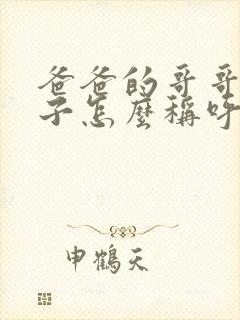 爸爸的哥哥
子怎麼稱呼
申鶴天